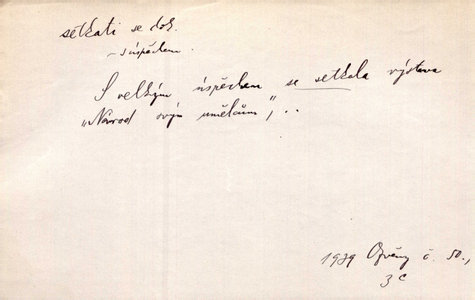 setkati se dok.
– s úspěchem.
S velkým úspěchem se setkala výstava
„Národ svým umělcům", ..
1939 č. 50.,
3 c